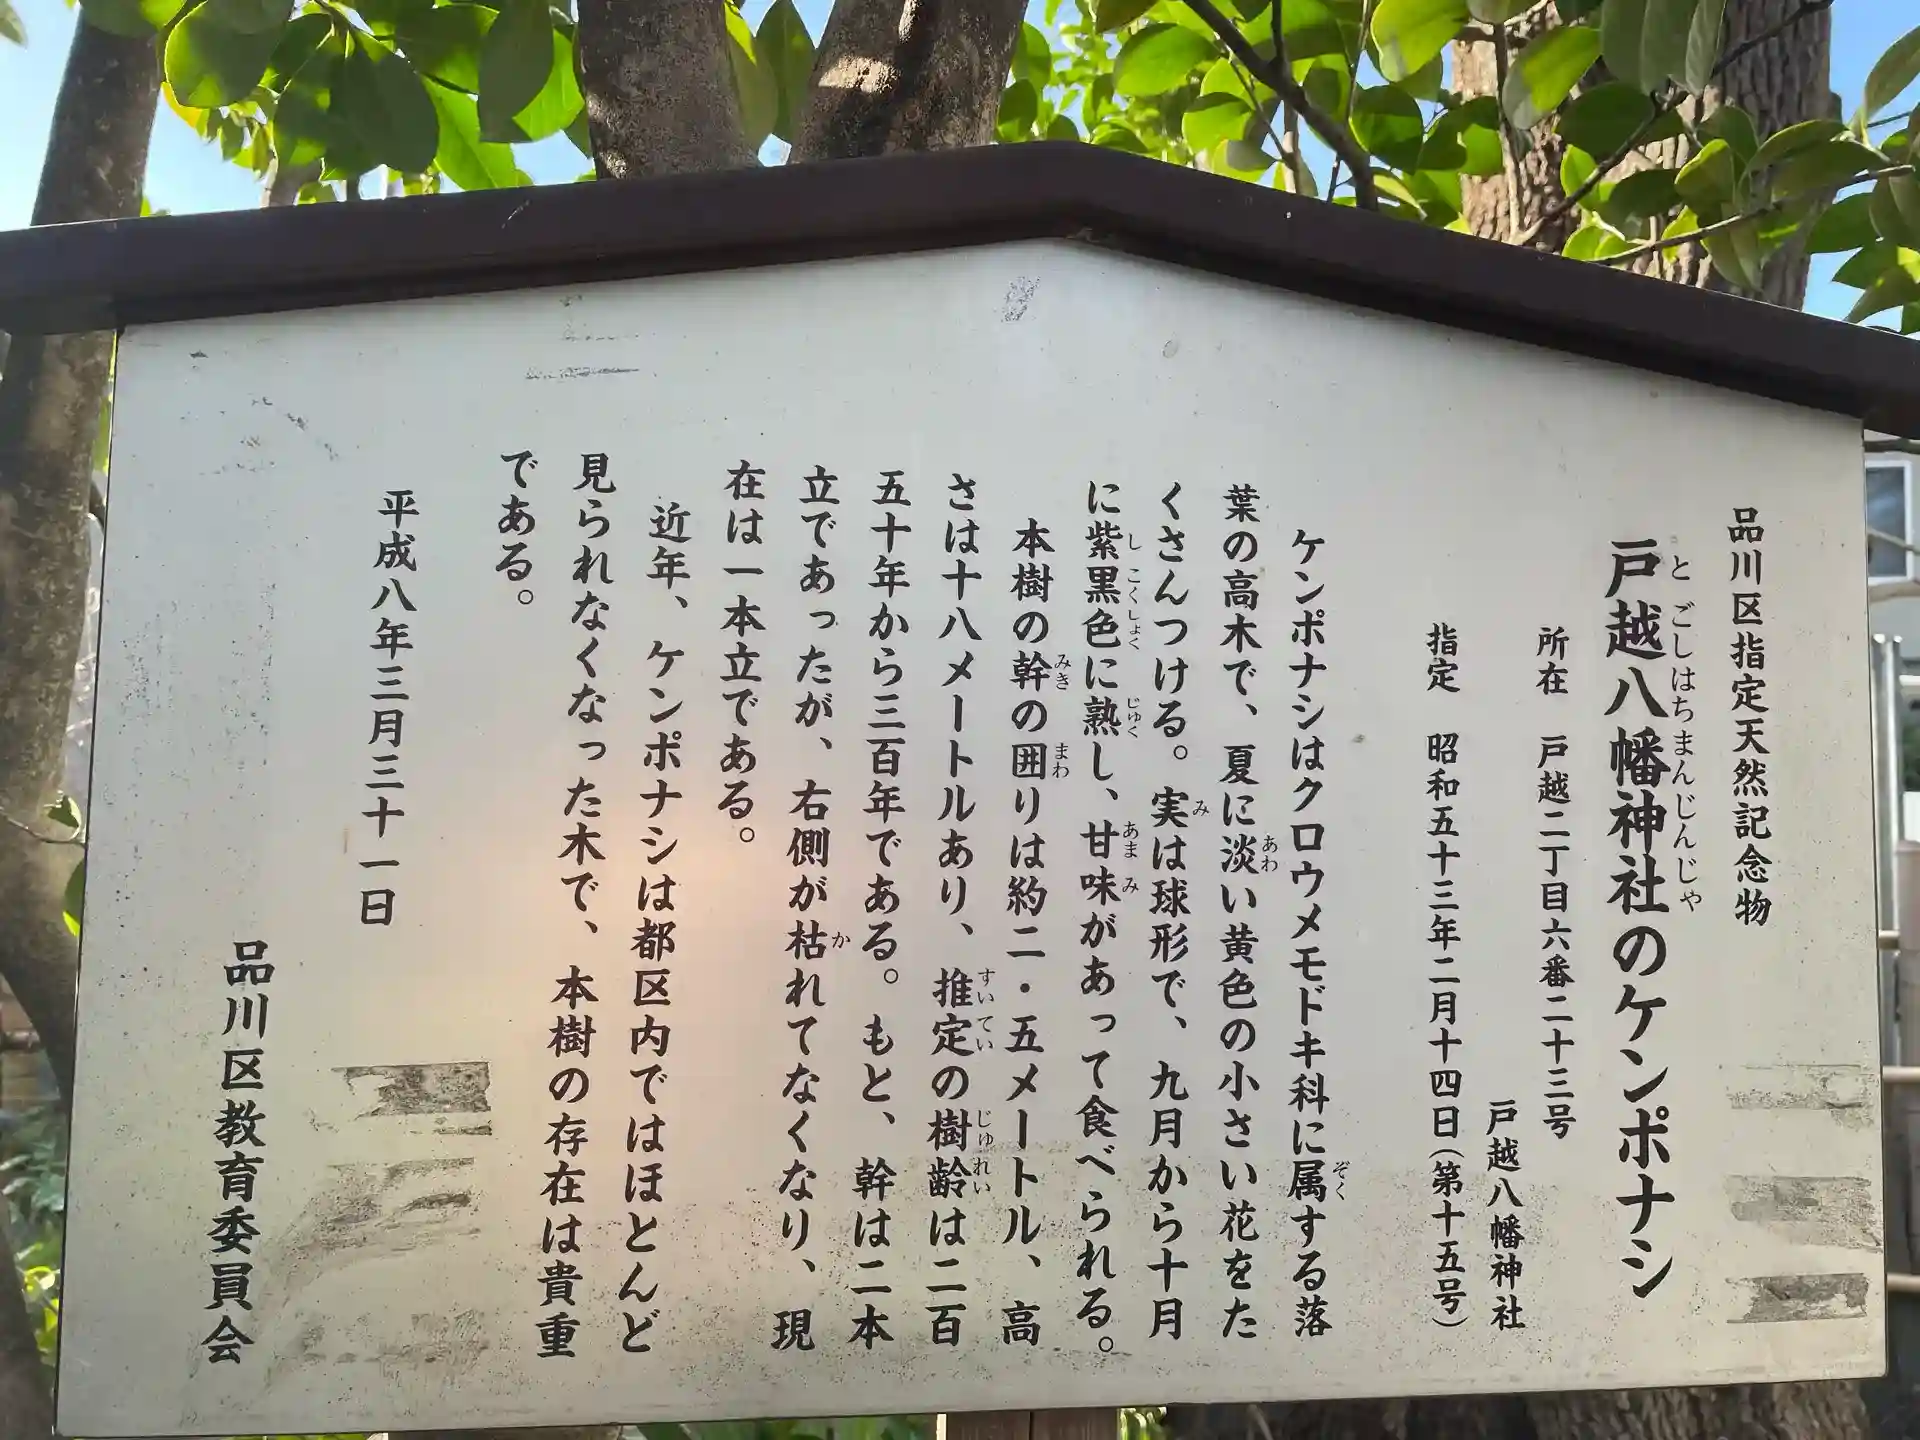 品川区指定天然記念物
戸越八幡神社のケンポナシ
とごしはちまんじんじゃ
所在　戸越二丁目六番二十三号
戸越八幡神社
指定　昭和五十三年二月十四日(第十五号)
ケンポナシはクロウメモドキ科に属する落
ぞく
葉の高木で、夏に淡い黄色の小さい花をた
あわ
くさんつける。実は球形で、九月から十月
み
に紫黒色に熟し、甘味があって食べられる。
しこくしょく　じゅく　あまみ
本樹の幹の囲りは約二・五メートル、高
みき　まわ
さは十八メートルあり、推定の樹齢は二百
すいてい　じゅれい
五十年から三百年である。もと、幹は二本
立であったが、右側が枯れてなくなり、現
か
在は一本立である。
近年、ケンポナシは都区内ではほとんど
見られなくなった木で、本樹の存在は貴重
である。
平成八年三月三十一日
品川区教育委員会